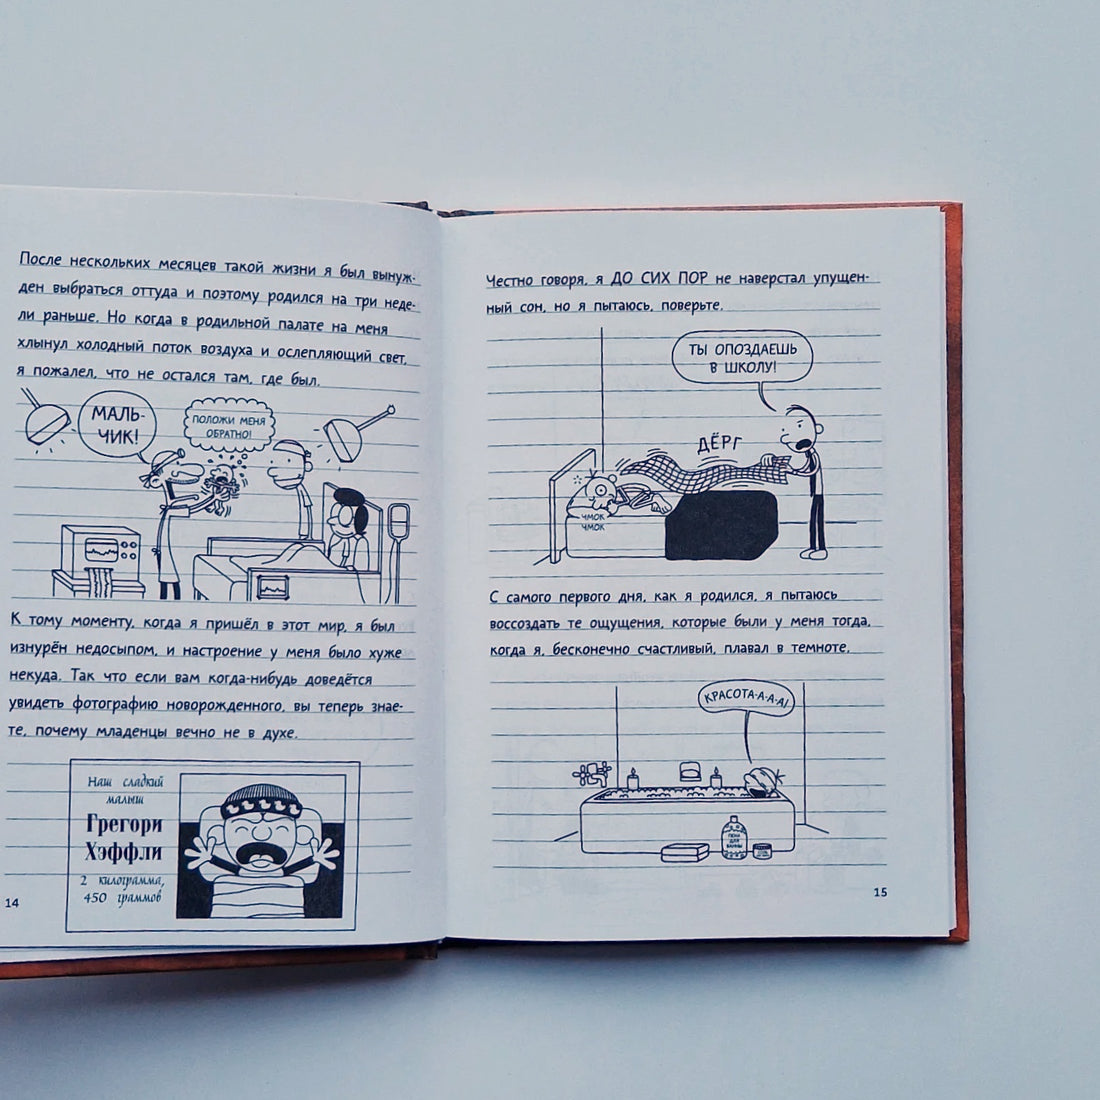 После нескольких месяцев такой жизни я был вынуж-
ден выбраться оттуда и поэтому родился на три неде-
ли раньше. Но когда в родильной палате на меня
хлынул холодный поток воздуха и ослепляющий свет,
я пожалел, что не остался там, где был.
МАЛЬ-
ЧИК!
ПОЛОЖИ МЕНЯ
ОБРАТНО!
К тому моменту, когда я пришёл в этот мир, я был
изнурён недосыпом, и настроение у меня было хуже
некуда. Так что если вам когда-нибудь доведётся
увидеть фотографию новорожденного, вы теперь знае-
те, почему младенцы вечно не в духе.
Наш сладкий
малыш
Грегори
Хэффли
2 килограмма,
450 граммов
14
Честно говоря, я ДО СИХ ПОР не наверстал упущен-
ный сон, но я пытаюсь, поверьте.
ТЫ ОПОЗДАЕШЬ
В ШКОЛУ!
ДЁРГ
ЧМОК
ЧМОК
С самого первого дня, как я родился, я пытаюсь
воссоздать те ощущения, которые были у меня тогда,
когда я, бесконечно счастливый, плавал в темноте.
КРАСОТА-А-А-А!
ПЕНА
ДЛЯ
ВАННЫ
15